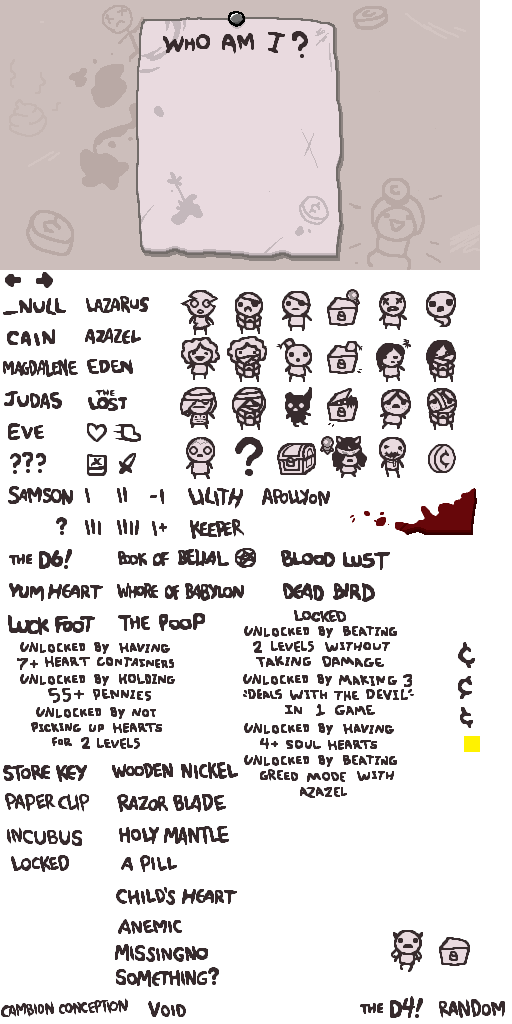 WHO AM I?
_NULL LAZARUS
CAIN AZAZEL
MAGDALENE EDEN
JUDAS THE LOST
EVE
???
?
SAMSON I II -I LILITH APOLLYON
? III IIII I+ KEEPER
THE D6! BOOK OF BELIAL BLOOD LUST
YUM HEART WHORE OF BABYLON DEAD BIRD
LUCK FOOT THE POOP
LOCKED
UNLOCKED BY HAVING
7+ HEART CONTAINERS
UNLOCKED BY HOLDING
55+ PENNIES
UNLOCKED BY NOT
PICKING UP HEARTS
FOR 2 LEVELS
UNLOCKED BY BEATING
2 LEVELS WITHOUT
TAKING DAMAGE
UNLOCKED BY MAKING 3
"DEALS WITH THE DEVIL"
IN 1 GAME
UNLOCKED BY HAVING
4+ SOUL HEARTS
UNLOCKED BY BEATING
GREED MODE WITH
AZAZEL
¢
¢
¢
STORE KEY WOODEN NICKEL
PAPER CLIP RAZOR BLADE
INCUBUS HOLY MANTLE
LOCKED A PILL
CHILD'S HEART
ANEMIC
MISSINGNO
SOMETHING?
CAMBION CONCEPTION VOID THE D4! RANDOM